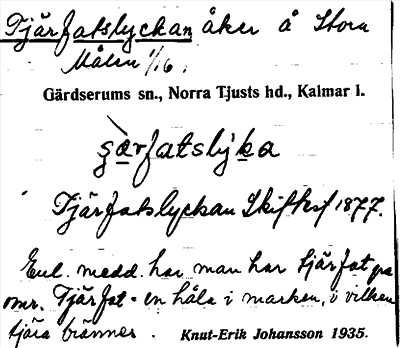 Tjärfatslyckan åker å Stora
Målen 1/16.
Gärdserums sn., Norra Tjusts hd., Kalmar l.
Tjärfatslyckan Skifteshf 1877.
Enl. medd. har man har tjärfat på
omr. Tjärfat = en håla i marken, i vilken
tjära brännes. Knut-Erik Johansson 1935.